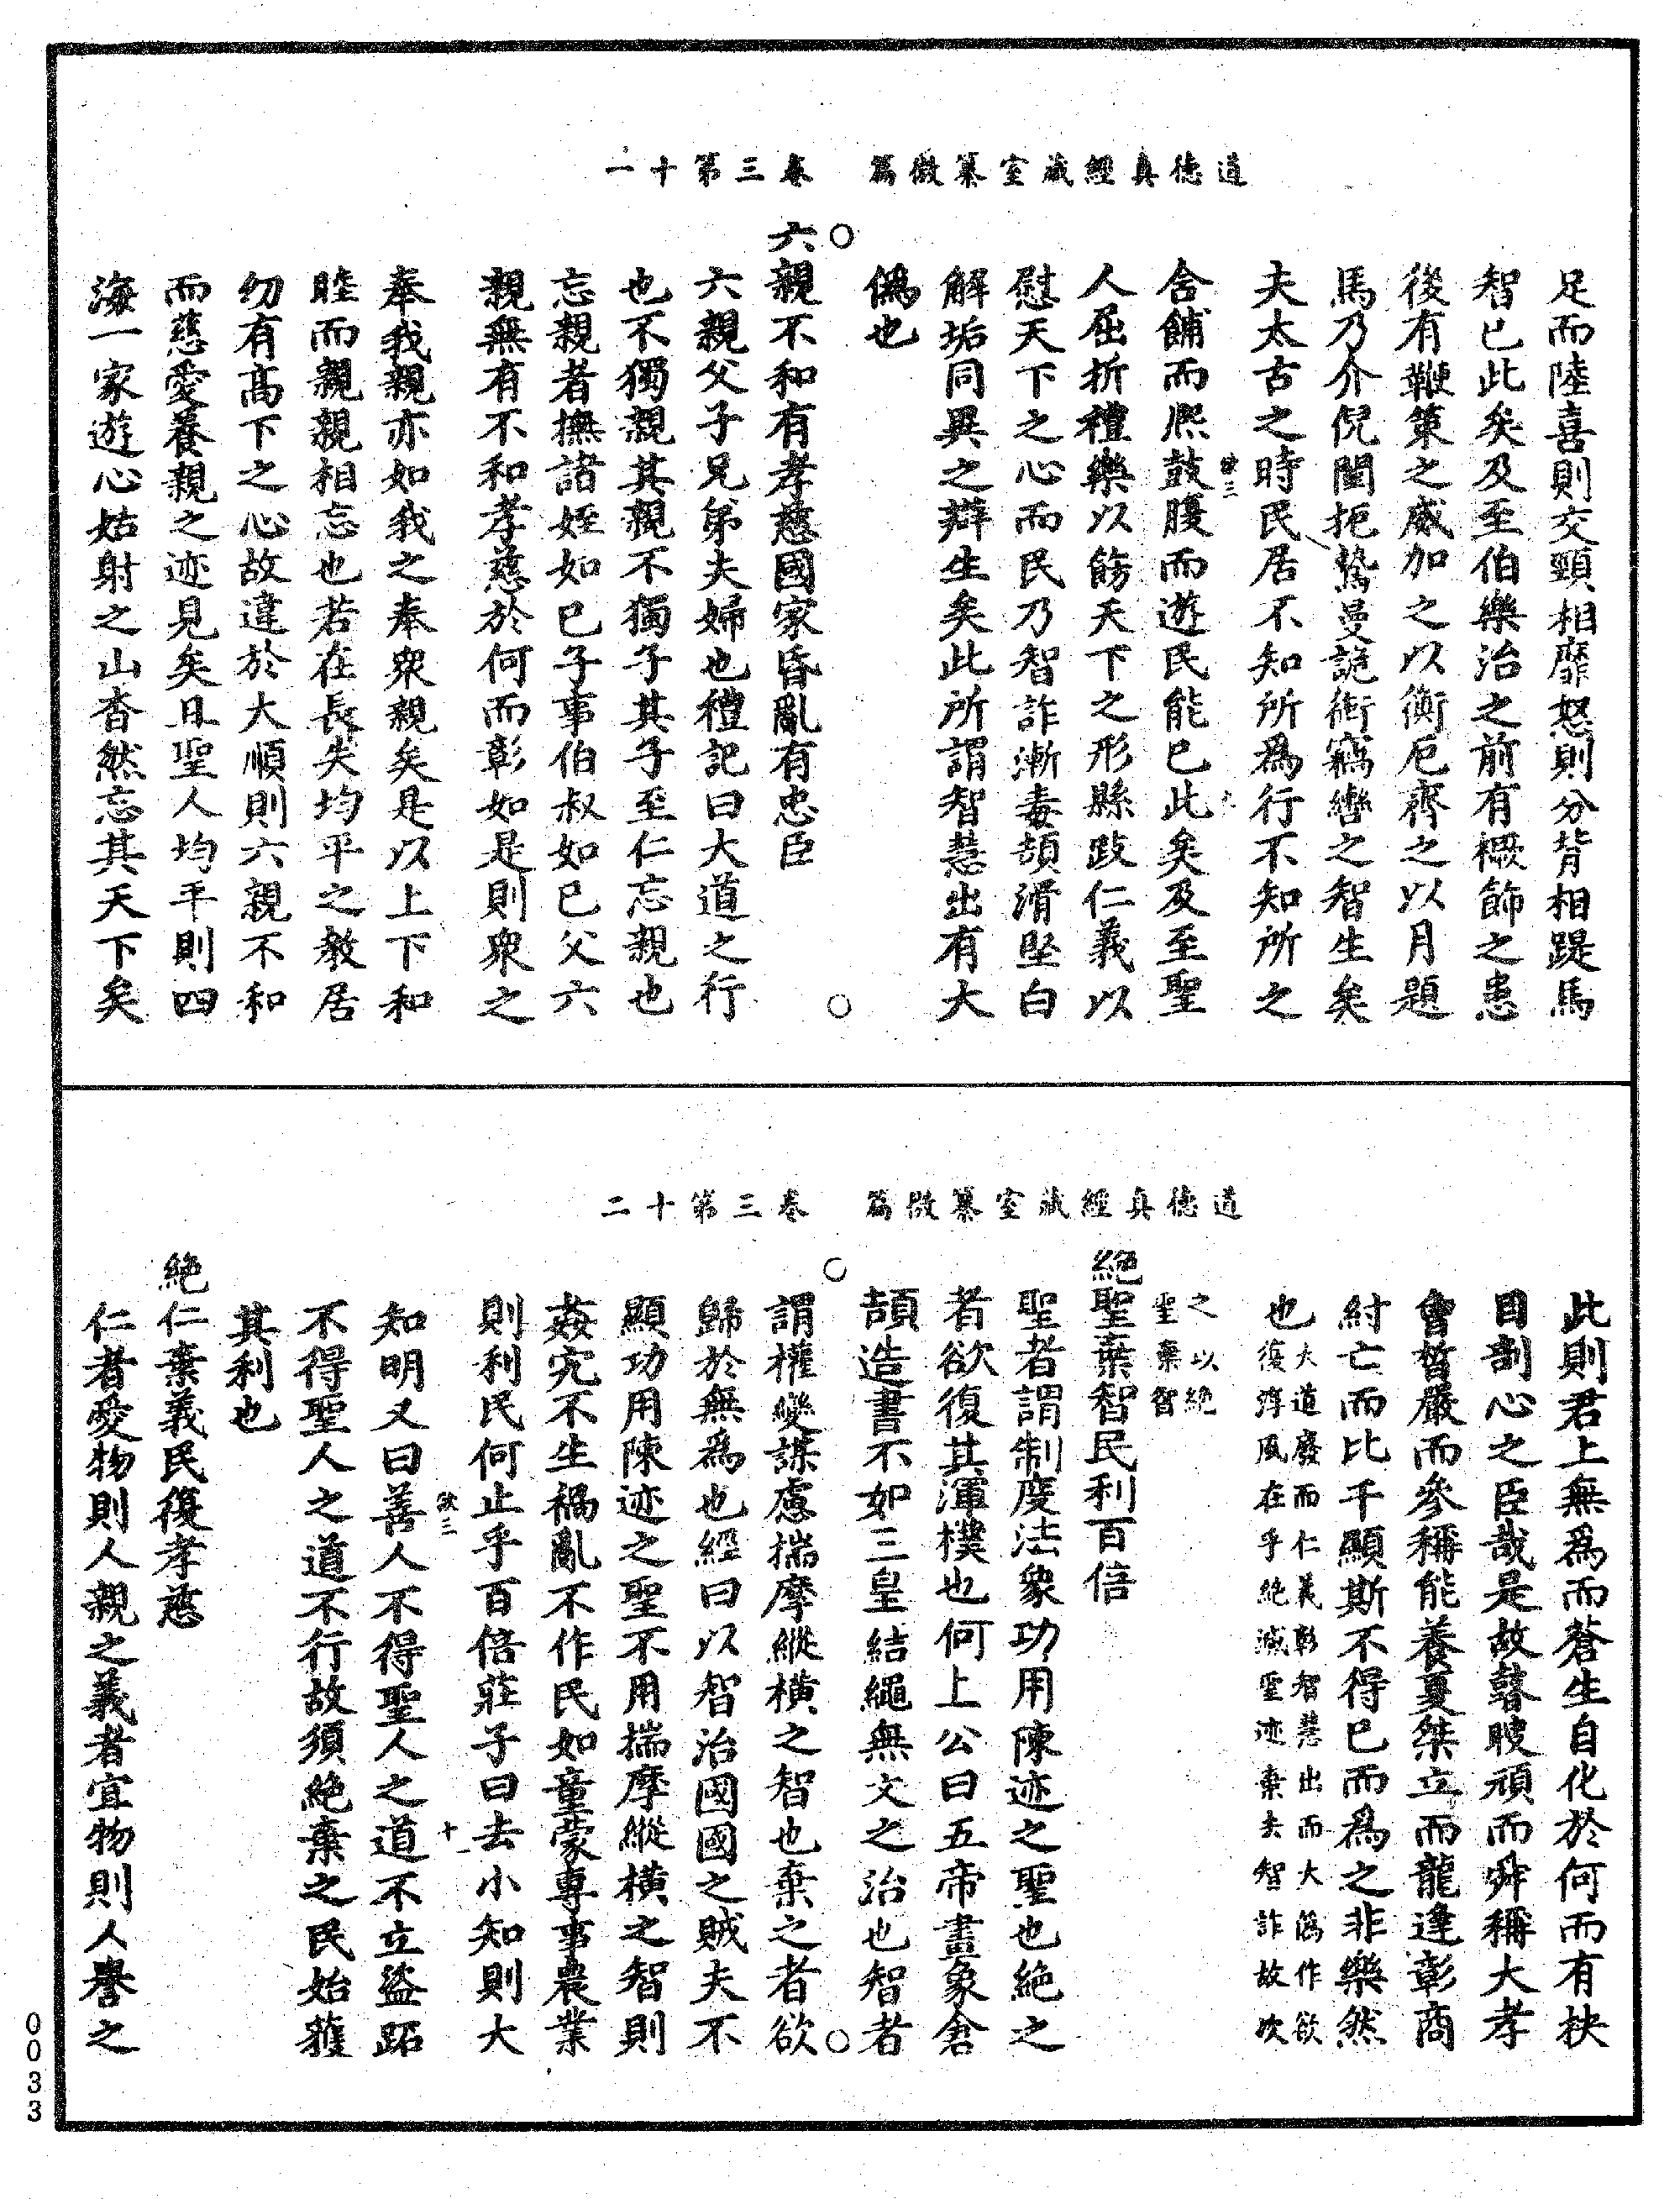 道德真經藏室纂微篇　卷三第十一
足而陸喜則交頸相靡怒則分背相踶馬
智已此矣及至伯樂治之前有橛飾之患
後有鞭策之威加之以衡扼齊之以月題
馬乃介倪闉扼鷙曼詭銜竊轡之智生矣
夫太古之時民居不知所爲行不知所之
欲三
含餔而熙鼓腹而遊民能已此矣及至聖
人屈折禮樂以飾天下之形縣跂仁義以
慰天下之心而民乃智詐漸毒頡滑堅白
解垢同異之辯生矣此所謂智慧出有大
僞也
○　○
六親不和有孝慈國家昏亂有忠臣
六親父子兄弟夫婦也禮記曰大道之行
也不獨親其親不獨子其子至仁忘親也
忘親者撫諸姪如已子事伯叔如已父六
親無有不和孝慈於何而彰如是則衆之
奉我親亦如我之奉衆親矣是以上下和
睦而親親相忘也若在長失均平之教居
幼有高下之心故違於大順則六親不和
而慈愛養親之迹見矣且聖人均平則四
海一家遊心姑射之山杳然忘其天下矣
道德真經藏室纂微篇　卷三第十二
此則君上無爲而蒼生自化於何而有抉
目剖心之臣哉是故瞽瞍頑而舜稱大孝
曾皙嚴而參稱能養夏桀立而龍逢彰商
紂亡而比干顯斯不得已而爲之非樂然
也大道廢而仁義彰智慧出而大僞作欲
復淳風在乎絶滅聖迹棄去智詐故次
之以絶
聖棄智
絕聖棄智民利百倍
聖者謂制度法象功用陳迹之聖也絶之
者欲復其渾樸也何上公曰五帝畫象倉
頡造書不如三皇結繩無文之治也智者
○　○
謂權變謀慮揣摩縱橫之智也棄之者欲
歸於無爲也經曰以智治國國之賊夫不
顯功用陳迹之聖不用揣摩縱橫之智則
姦宄不生禍亂不作民如童蒙專事農業
則利民何止乎百倍莊子曰去小知則大
欲三　十一
知明又曰善人不得聖人之道不立盜跖
不得聖人之道不行故須絶棄之民始獲
其利也
絶仁棄義民復孝慈
仁者愛物則人親之義者宜物則人譽之
0033